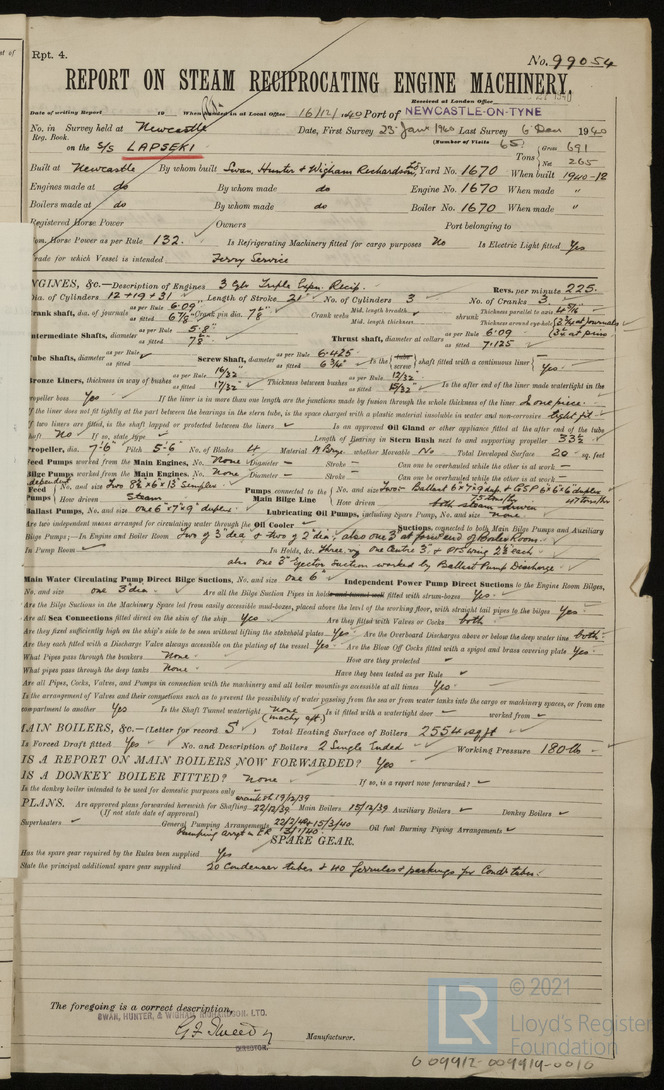 Rpt. 4.
No. 99054
REPORT ON STEAM RECIPROCATING ENGINE MACHINERY.
Received at London Office
Date of writing Report 19 When handed in at Local Office 16/12/1940 Port of NEWCASTLE-ON-TYNE
No. in Survey held at Newcastle Date, First Survey 23 Jan 1940 Last Survey 6 Dec 1940
Reg. Book. (Number of Visits 65)
on the S/S LAPSEKI Tons Gross 691
Net 265
Built at Newcastle By whom built Swan, Hunter & Wigham Richardson Ltd Yard No. 1670 When built 1940-12
Engines made at do By whom made do Engine No. 1670 When made "
Boilers made at do By whom made do Boiler No. 1670 When made "
Registered Horse Power Owners Port belonging to
Nom. Horse Power as per Rule 132. Is Refrigerating Machinery fitted for cargo purposes No Is Electric Light fitted Yes
Trade for which Vessel is intended Ferry Service
ENGINES, &c.—Description of Engines 3 Cyl Triple Expn. Recip. Revs. per minute 225.
Dia. of Cylinders 12 + 19 + 31 Length of Stroke 21" No. of Cylinders 3 No. of Cranks 3
Crank shaft, dia. of journals as per Rule 6.09 as fitted 6 7/8" Crank pin dia. 7 1/8" Crank webs Mid. length breadth Mid. length thickness shrunk Thickness parallel to axis 4 5/16 Thickness around eye-hole (3 3/4 at journals
Intermediate Shafts, diameter as per Rule 5.8" as fitted Thrust shaft, diameter at collars as per Rule 6.09 as fitted 7.125
Tube Shafts, diameter as per Rule as fitted Screw Shaft, diameter as per Rule 6.425 as fitted 6 3/4" Is the tube screw shaft fitted with a continuous liner Yes
Bronze Liners, thickness in way of bushes as per Rule 16/32" as fitted 17/32" Thickness between bushes as per Rule 12/32" as fitted 15/32" Is the after end of the liner made watertight in the
propeller boss Yes If the liner is in more than one length are the junctions made by fusion through the whole thickness of the liner In one piece
If the liner does not fit tightly at the part between the bearings in the stern tube, is the space charged with a plastic material insoluble in water and non-corrosive tight fit
If two liners are fitted, is the shaft lapped or protected between the liners Is an approved Oil Gland or other appliance fitted at the after end of the tube
shaft No If so, state type Length of Bearing in Stern Bush next to and supporting propeller 33 1/2
Propeller, dia. 7'6" Pitch 5'6" No. of Blades 4 Material M Bronze. whether Moveable No Total Developed Surface 20 sq. feet
Feed Pumps worked from the Main Engines, No. None Diameter Stroke Can one be overhauled while the other is at work
Bilge Pumps worked from the Main Engines, No. None Diameter Stroke Can one be overhauled while the other is at work
Feed Pumps No. and size Two 8 1/2" x 6" x 13" Simplex How driven Steam Pumps connected to the Main Bilge Line No. and size Two - Ballast 6"x7"x9" dup. & G.S.P. 6"x6"x6" duplex How driven both steam driven
Ballast Pumps, No. and size one 6"x7"x9" duplex Lubricating Oil Pumps, including Spare Pump, No. and size None
Are two independent means arranged for circulating water through the Oil Cooler Suctions, connected to both Main Bilge Pumps and Auxiliary
Bilge Pumps;—In Engine and Boiler Room Two of 3" dia & two of 2" dia, also one 3" at for'd end of Boiler Room
In Pump Room In Holds, &c. Three, one Centre 3" & P&S wing 2 1/2 each
also one 3" Ejector Suction worked by Ballast Pump Discharge
Main Water Circulating Pump Direct Bilge Suctions, No. and size one 6" Independent Power Pump Direct Suctions to the Engine Room Bilges,
No. and size one 3" dia. Are all the Bilge Suction Pipes in holds and tunnel well fitted with strum-boxes Yes
Are the Bilge Suctions in the Machinery Space led from easily accessible mud-boxes, placed above the level of the working floor, with straight tail pipes to the bilges Yes
Are all Sea Connections fitted direct on the skin of the ship Yes Are they fitted with Valves or Cocks both
Are they fixed sufficiently high on the ship's side to be seen without lifting the stokehold plates Yes Are the Overboard Discharges above or below the deep water line both
Are they each fitted with a Discharge Valve always accessible on the plating of the vessel Yes Are the Blow Off Cocks fitted with a spigot and brass covering plate Yes
What Pipes pass through the bunkers None How are they protected
What pipes pass through the deep tanks None Have they been tested as per Rule
Are all Pipes, Cocks, Valves, and Pumps in connection with the machinery and all boiler mountings accessible at all times Yes
Is the arrangement of Valves and their connections such as to prevent the possibility of water passing from the sea or from water tanks into the cargo or machinery spaces, or from one
compartment to another Yes Is the Shaft Tunnel watertight None (machy aft) Is it fitted with a watertight door worked from
MAIN BOILERS, &c.—(Letter for record S) Total Heating Surface of Boilers 2554 sq ft
Is Forced Draft fitted Yes No. and Description of Boilers 2 Single Ended Working Pressure 180 lb
IS A REPORT ON MAIN BOILERS NOW FORWARDED? Yes
IS A DONKEY BOILER FITTED? None If so, is a report now forwarded?
Is the donkey boiler intended to be used for domestic purposes only
PLANS. Are approved plans forwarded herewith for Shafting crank sh. 19/12/39 22/12/39 Main Boilers 15/12/39 Auxiliary Boilers Donkey Boilers
(If not state date of approval)
Superheaters General Pumping Arrangements 22/2/40 & 15/3/40 Oil fuel Burning Piping Arrangements
Pumping Arrgt in E.R. 13/1/40
SPARE GEAR.
Has the spare gear required by the Rules been supplied Yes
State the principal additional spare gear supplied 20 Condenser tubes & 40 ferrules & packings for Condr tubes.
The foregoing is a correct description,
SWAN, HUNTER, & WIGHAM RICHARDSON, LTD.
Manufacturer.
DIRECTOR.
LR
© 2021
Lloyd's Register
Foundation
009912-009919-0010